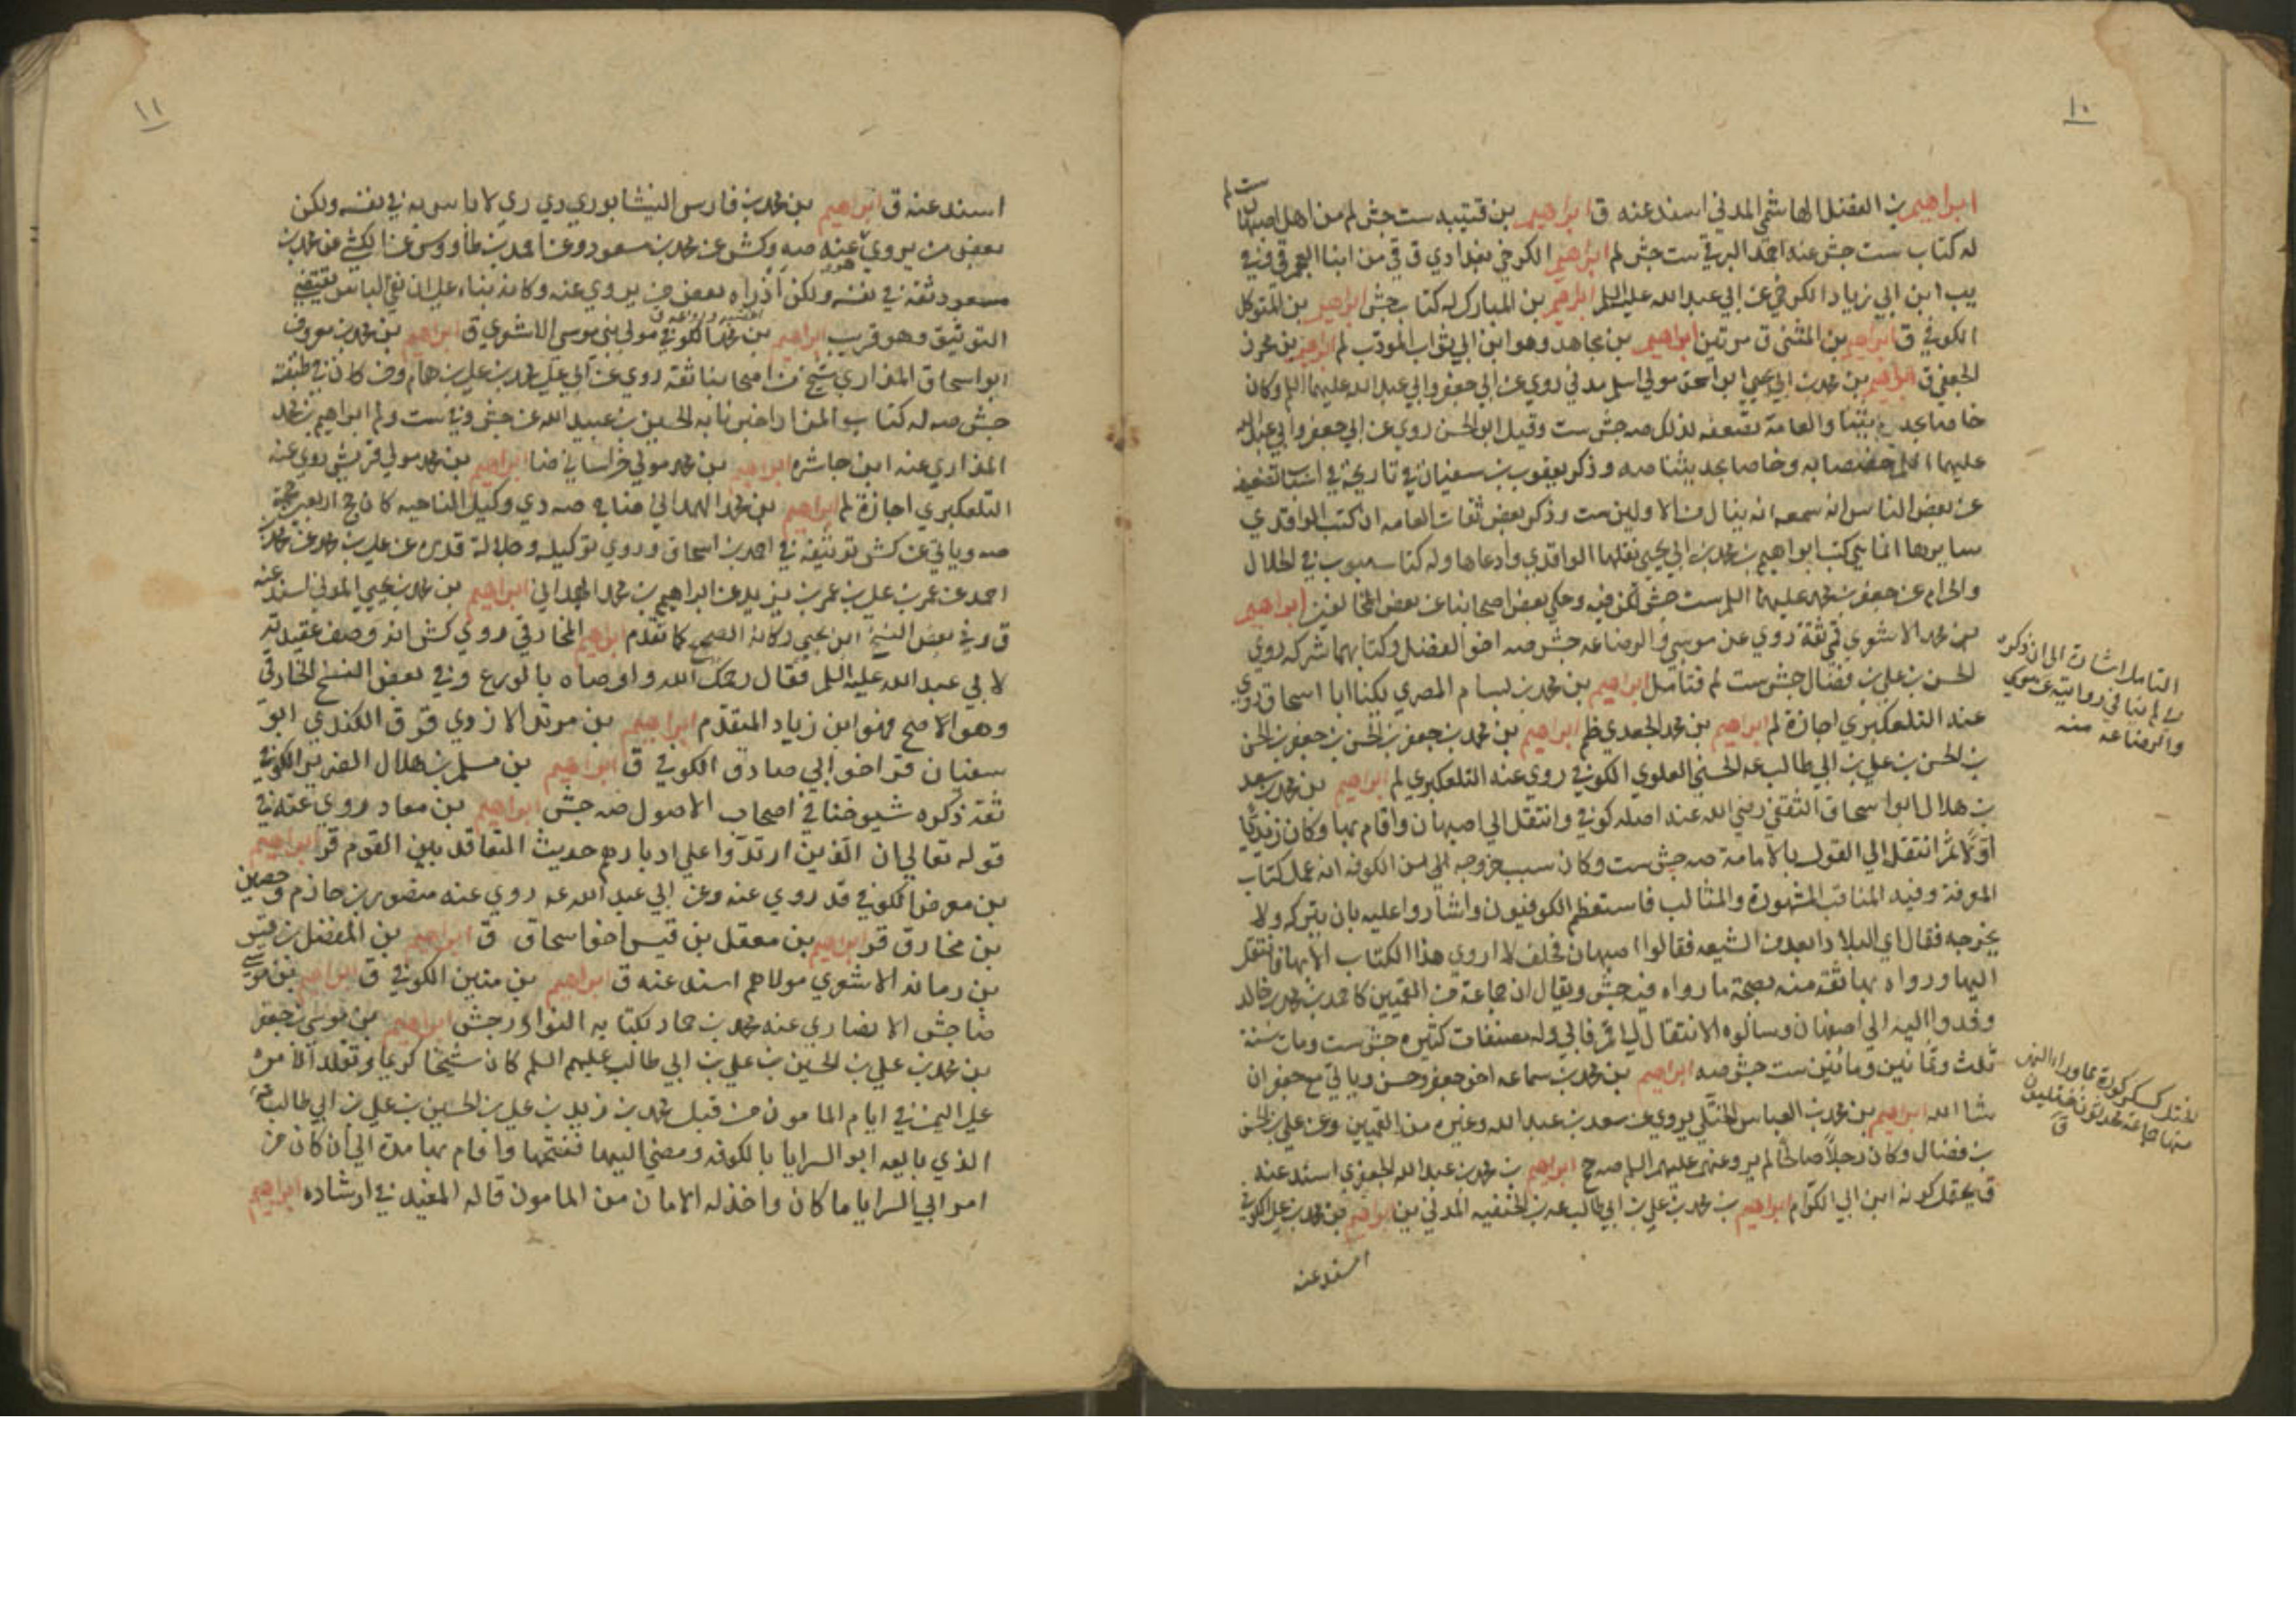 ١٠
ابراهيم بن الفضل الهاشمي المدني اسند عنه ق ابراهيم بن قتيبه ست جش لم من اهل اصبهان
له كتاب ست جش عنه احمد البرقي ست جش لم ابراهيم الكرخي بغدادي ق في من ابنا العجم
ابن ابي زياد الكرخي عن ابي عبد الله عليه السلم ابراهيم بن المبارك له كتاب جش ابراهيم بن المتوكل
الكوفي ق ابراهيم بن المثنى ق مرتين ابراهيم بن مجاهد وهو ابن ابي ثواب المودب لم ابراهيم بن محرز
الجعفي ق ابراهيم بن محمد بن ابي يحيي ابو اسحق مولي اسلم مدني روي عن ابي جعفر وابي عبد الله عليهما السلم وكان
خاصا بحديثنا والعامة تضعفه لذلك صه جش ست وقيل ابو الحسن روي عن ابي جعفر وابي عبد الله
عليهما السلم خصيصا به وخاصا بحديثنا صه وذكر يعقوب بن سفيان في تاريخه في اسباب تضعيفه
عن بعض الناس انه سمعه انه ينال من الاولين ست وذكر بعض ثقات العامه ان كتب الواقدي
سايرها انما هي كتب ابراهيم بن محمد بن ابي يحيي نقلها الواقدي وادعاها وله كتاب مبوب في الحلال
والحرام عن جعفر بن محمد عليهما السلم ست جش لكن فيه وحكي بعض اصحابنا عن بعض المخالفين ابراهيم
بن محمد الاشعري قمي ثقة روي عن موسي والرضا عه جش صه اخو الفضل وكتابهما شركه روي
الحسن بن علي بن فضال جش ست لم فتامل ابراهيم بن محمد بن بسام المصري يكنا ابا اسحاق روي
عنه التلعكبري اجازة لم ابراهيم بن محمد الجعدي ظم ابراهيم بن محمد بن جعفر بن الحسن بن جعفر بن الحسن
بن الحسن بن علي بن ابي طالب عه الحسني العلوي الكوفي روي عنه التلعكبري لم ابراهيم بن محمد بن سعيد
بن هلال ابو اسحاق الثقفي رضي الله عنه اصله كوفي وانتقل الي اصبهان واقام بها وكان زيديا
اولا ثم انتقل الي القول بالامامة صه جش ست وكان سبب خروجه الي من الكوفه انه عمل كتاب
المعرفة وفيه المناقب المشهورة والمثالب فاستعظم الكوفيون واشاروا عليه بان يتركه ولا
يخرجه فقال اي البلاد ابعد من الشيعه فقالوا اصبهان فحلف لا اروي هذا الكتاب الا بها فانتقل
اليها ورواه بها ثقة منه بصحة ما رواه فيه جش ويقال ان جماعة من القميين كاحمد بن محمد بن خالد
وفدوا اليه الي اصفهان وسالوه الانتقال الي قم فابي وله مصنفات كثيره جش ست ومات سنة
ثلث وثمانين ومائتين ست جش صه ابراهيم بن محمد بن سماعه اخو جعفر وحسن وياتي مع جعفر ان
شا الله ابراهيم بن محمد بن العباس الختلي يروي عن سعد بن عبد الله وغيره من القميين وعن علي بن الحسن
بن فضال وكان رجلا صالحا لم يرو عنهم عليهم السلم صه ج ابراهيم بن محمد بن عبد الله الجعفري اسند عنه
ق يحتمل كونه ابن ابي الكرام ابراهيم بن محمد بن علي بن ابي طالب عه بن الحنفيه المدني ين ابراهيم بن محمد بن علي الكوفي
اسند عنه
التامل اشارة الي ان ذكره
في لم ينافي روايته عن موسي
والرضا عه منه
الختل كسكر كورة بما وراء النهر
منها جماعة محدثون ختليون
ق
١١
اسند عنه ق ابراهيم بن محمد بن فارس النيشابوري دي ري لا باس به في نفسه ولكن
بعض من يروي هو عنه صه وكش عن محمد بن مسعود وعن احمد بن طاووس عن الكشي عن محمد بن
مسعود ثقة في نفسه ولكن بعض من يروي عنه وكانه بناء علي ان نفي الباس يقتضي
التوثيق وهو قريب ابراهيم بن محمد الكوفي مولي بني موسي الاشعري ق ابراهيم بن محمد بن معروف
ابو اسحاق المذاري شيخ من اصحابنا ثقة روي عن ابي علي محمد بن علي بن همام ومن كان في طبقته
جش صه له كتاب المزار اخبرنا به الحسين بن عبيد الله عن جش وفي ست ولم ابراهيم بن محمد
المذاري عنه ابن حاشر ابراهيم بن محمد مولي خراساني ضا ابراهيم بن محمد مولي قريش روي عنه
التلعكبري اجازة لم ابراهيم بن محمد الهمداني ضا ج صه دي وكيل الناحيه كان حج اربعين حجة
صه وياتي عن كش توثيقه في احمد بن اسحاق وروي توكيله وجلالة قدره عن علي بن محمد عن محمد بن
احمد عن عمر بن علي بن عمر بن يزيد عن ابراهيم بن محمد الهمداني ابراهيم بن محمد بن يحيي المدني اسند عنه
ق وفي بعض النسخ ابن ابي يحيي وكانه الصحيح كما تقدم ابراهيم المخارقي روي كش انه وصف عقيدته
لابي عبد الله عليه السلم فقال رحمك الله واوصاه بالورع وفي بعض النسخ الخارقي
وهو الاصح فهو ابن زياد المتقدم ابراهيم بن مرثد الازدي قر ق الكندي ابو
سفيان قر اخو ابي صادق الكوفي ق ابراهيم بن مسلم بن هلال الضرير الكوفي
ثقة ذكره شيوخنا في اصحاب الاصول صه جش ابراهيم بن معاد روي عنه في
قوله تعالي ان الذين ارتدوا علي ادبارهم حديث التعاقد بين القوم قر ابراهيم
بن معرض الكوفي قد روي عنه وعن ابي عبد الله عه روي عنه منصور بن حازم وحصين
بن مخارق قر ابراهيم بن معقل بن قيس اخو اسحاق ق ابراهيم بن المفضل بن قيس
بن رمانه الاشعري مولاهم اسند عنه ق ابراهيم بن منين الكوفي ق ابراهيم بن موسي
ضا جش الانصاري عنه محمد بن حماد بكتابه النوادر جش ابراهيم بن موسي بن جعفر
بن محمد بن علي بن الحسين بن علي بن ابي طالب عليهم السلم كان شيخا كريما وتقلد الامره
علي اليمن في ايام المامون من قبل محمد بن زيد بن علي بن الحسين بن علي بن ابي طالب
الذي بايعه ابو السرايا بالكوفه ومضي اليها ففتحها واقام بها مدة الي ان كان من
امر ابي السرايا ما كان واخذ له الامان من المامون قاله المفيد في ارشاده ابراهيم